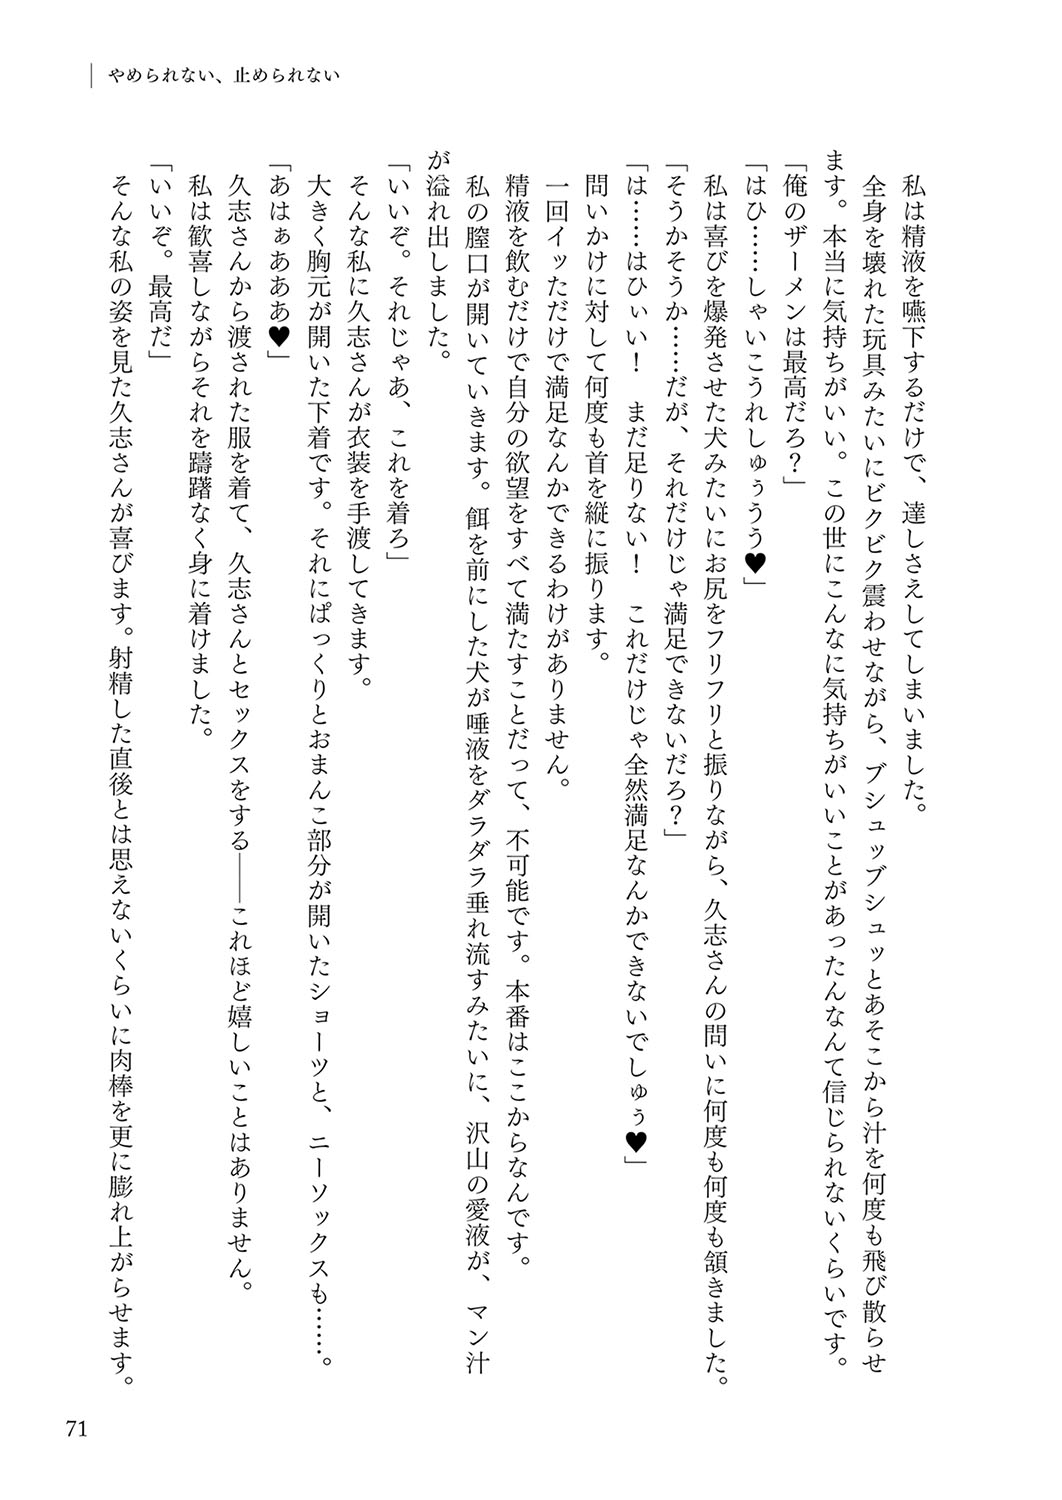 やめられない、止められない
私は精液を嚥下するだけで、達しさえしてしまいました。
全身を壊れた玩具みたいにビクビク震わせながら、ブシュッブシュッとあそこから汁を何度も飛び散らせ
ます。本当に気持ちがいい。この世にこんなに気持ちがいいことがあったんなんて信じられないくらいです。
「俺のザーメンは最高だろ？」
「はひ……しゃいこうれしゅぅうう♥」
私は喜びを爆発させた犬みたいにお尻をフリフリと振りながら、久志さんの問いに何度も何度も頷きました。
「そうかそうか……だが、それだけじゃ満足できないだろ？」
「は……はひぃい！　まだ足りない！　これだけじゃ全然満足なんかできないでしゅぅ♥」
問いかけに対して何度も首を縦に振ります。
一回イッただけで満足なんかできるわけがありません。
精液を飲むだけで自分の欲望をすべて満たすことだって、不可能です。本番はここからなんです。
私の膣口が開いていきます。餌を前にした犬が唾液をダラダラ垂れ流すみたいに、沢山の愛液が、マン汁
が溢れ出しました。
「いいぞ。それじゃあ、これを着ろ」
そんな私に久志さんが衣装を手渡してきます。
大きく胸元が開いた下着です。それにぱっくりとおまんこ部分が開いたショーツと、ニーソックスも……。
「あはぁあああ♥」
久志さんから渡された服を着て、久志さんとセックスをする――これほど嬉しいことはありません。
私は歓喜しながらそれを躊躇なく身に着けました。
「いいぞ。最高だ」
そんな私の姿を見た久志さんが喜びます。射精した直後とは思えないくらいに肉棒を更に膨れ上がらせます。
71